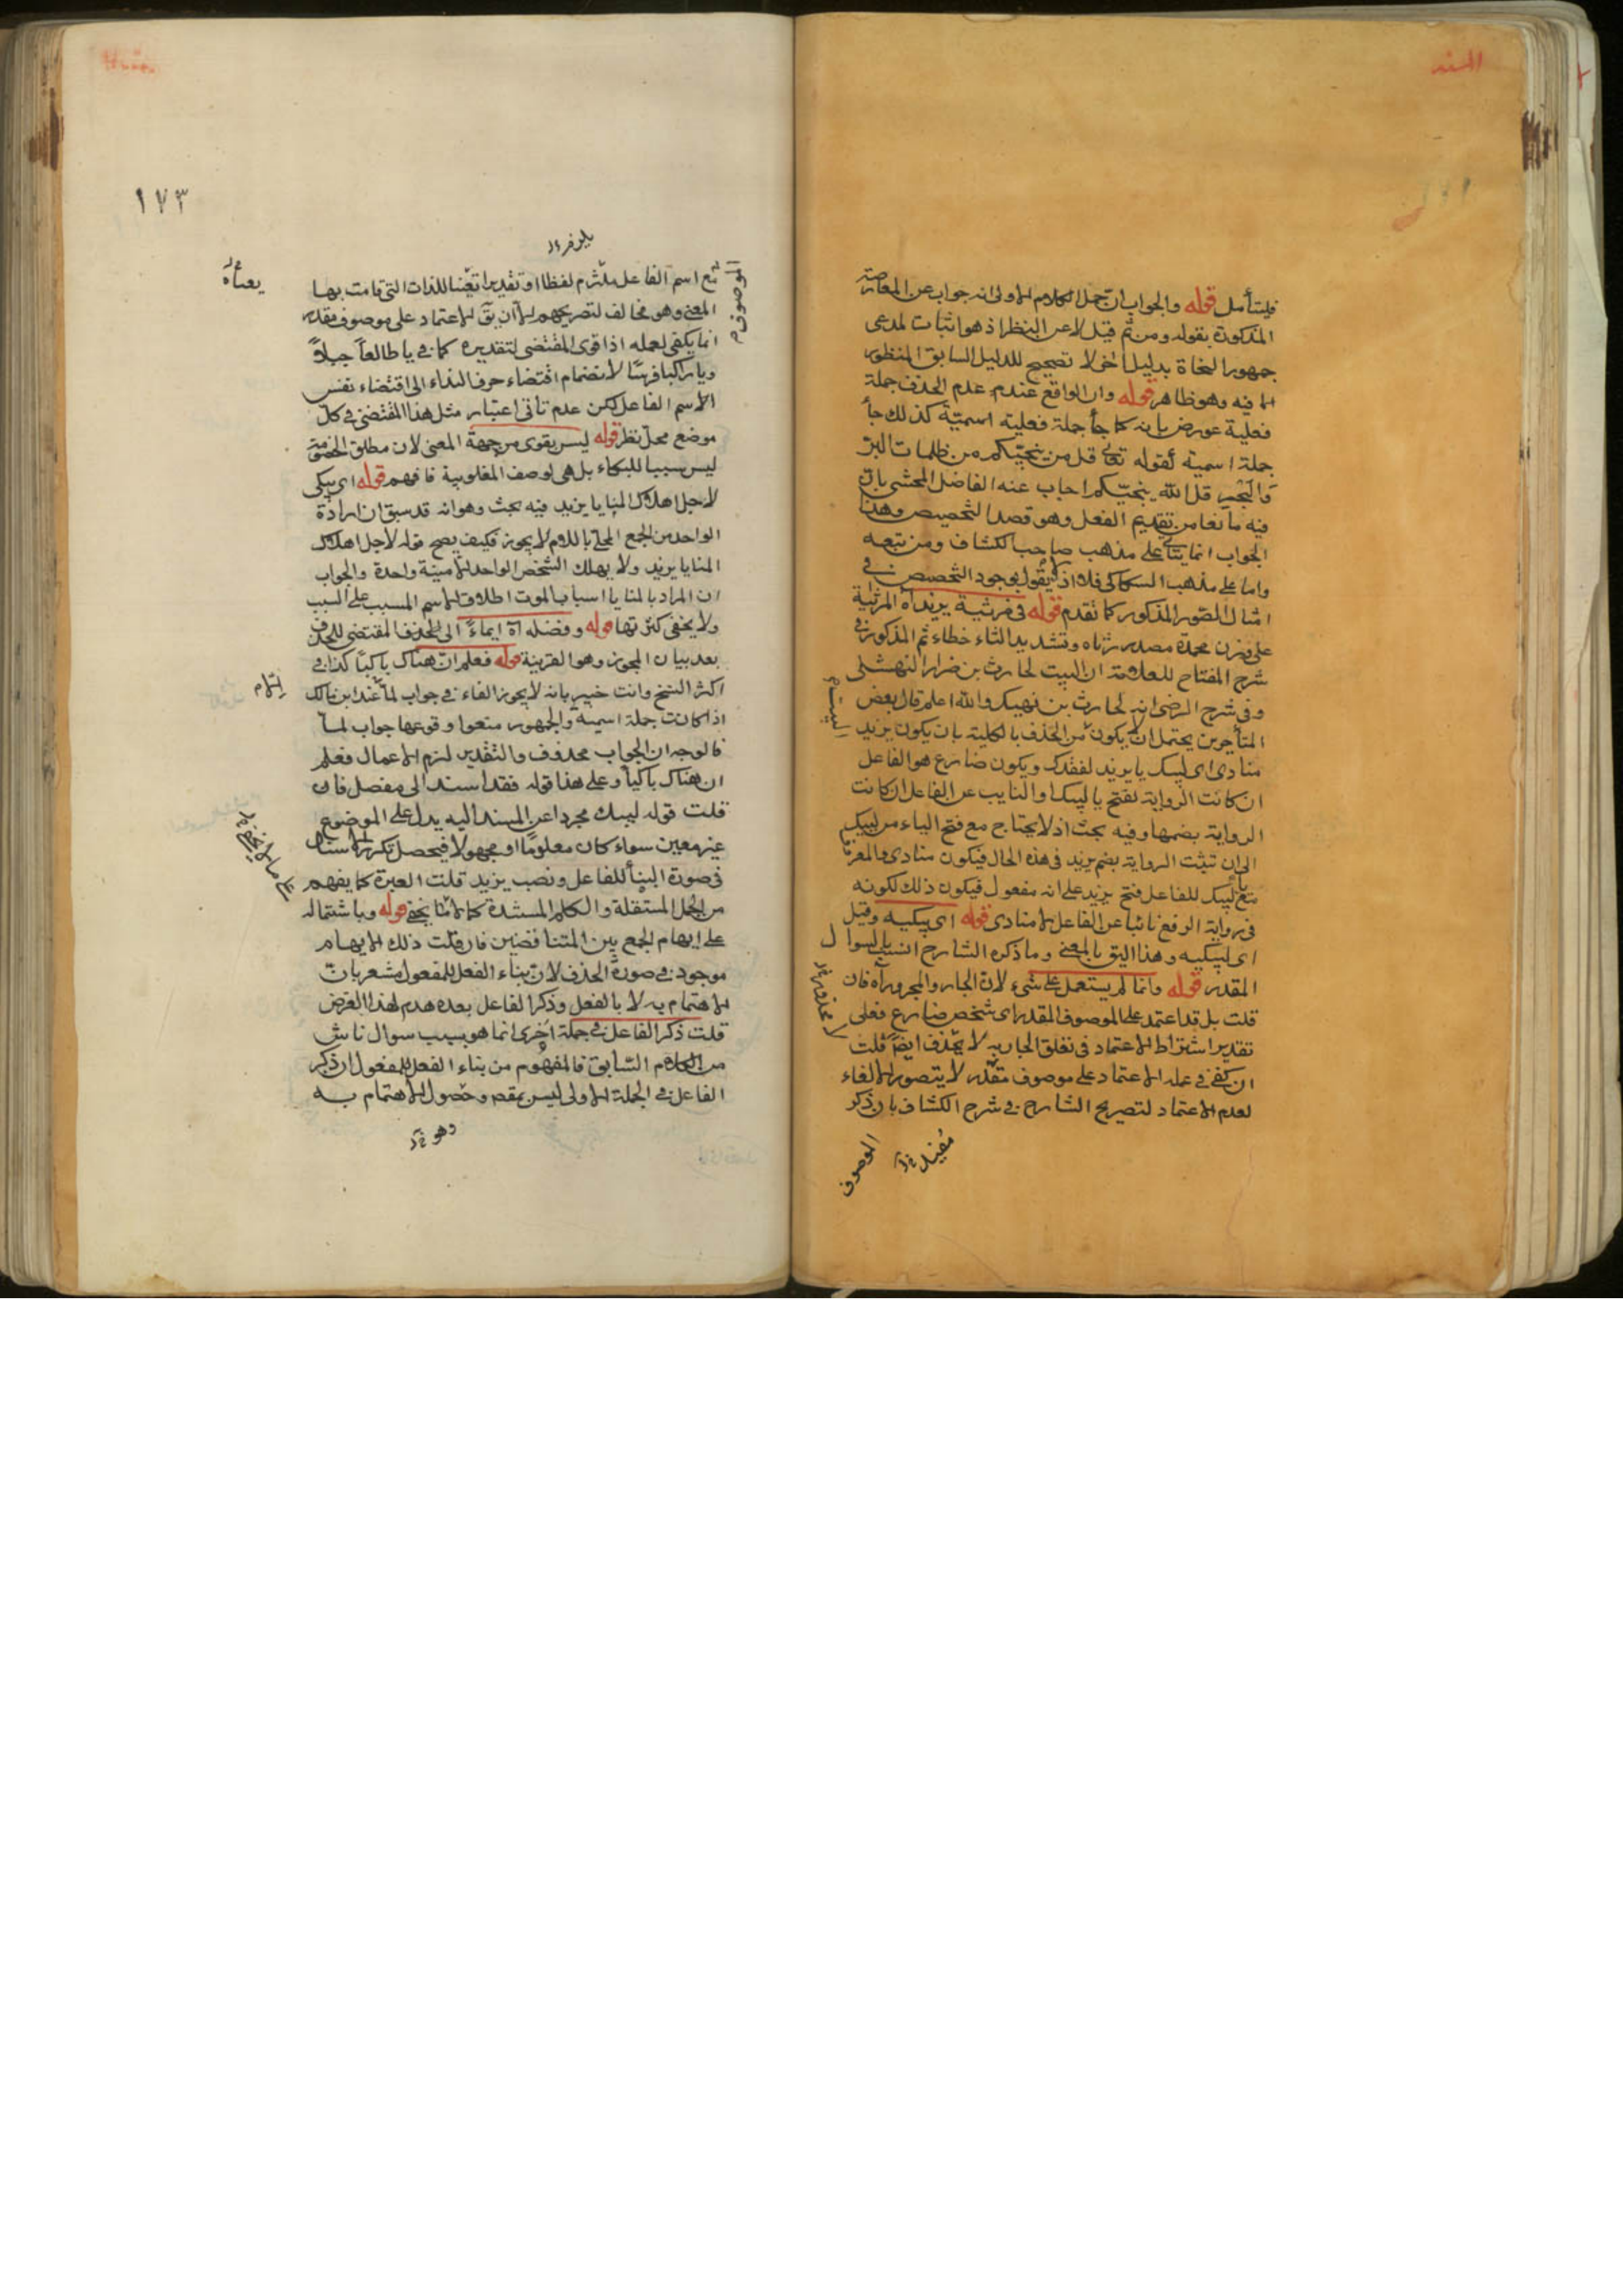 المسند
فليتأمل قوله والجواب ان حمل الكلام الاولى انه جواب عن المعارضة
المذكورة بقوله ومن ثم قيل لا عن النظر اذ هو اثبات لمدعى
جمهور النحاة بدليل اخر لا تصحيح للدليل السابق المنظور
فيه وهو ظاهر قوله وان الواقع عندهم عدم الحذف جملة
فعلية عورض بانه كما جاء جملة فعلية اسمية كذلك جاء
جملة اسمية كقوله تعالى قل من ينجيكم من ظلمات البر
والبحر قل الله ينجيكم اجاب عنه الفاضل المحشى بان
فيه مانعا من تقديم الفعل وهو قصد التخصيص وهذا
الجواب انما يتأتى على مذهب صاحب الكشاف ومن تبعه
واما على مذهب السكاكى فلا اذ لا يقول بوجود التخصيص فى
امثال الصور المذكور كما تقدم قوله فى مرثية يزيد اه المرثية
على وزن محمدة مصدر رثاه وتشديد الثاء خطاء ثم المذكور فى
شرح المفتاح للعلامة ان البيت لحارث بن ضرار النهشلى
وفى شرح الرضى انه لحارث بن نهيك والله اعلم قال بعض
المتأخرين يحتمل ان لا يكون من الحذف بالكلية بان يكون يزيد
منادى اى ليبك يا يزيد لفقدك ويكون ضارع هو الفاعل
ان كانت الرواية بفتح يا ليبك او النايب عن الفاعل ان كانت
الرواية بضمها وفيه بحث اذ لا يحتاج مع فتح الياء من ليبك
الى ان تثبت الرواية بضم يزيد فى هذه الحال فيكون منادى والمعرف
مع ليبك للفاعل فتح يزيد على انه مفعول فيكون ذلك لكونه
فى رواية الرفع نائبا عن الفاعل لا منادى قوله اى يبكيه وقيل
اى ليبكيه وهذا اليق بالمعنى وما ذكره الشارح انسب بالسوال
المقدر قوله وانما لم يستعمل على شىء لان الجار والمجرور اه فان
قلت بل قد اعتمد على الموصوف المقدر اى شخص ضارع فعلى
تقدير اشتراط الاعتماد فى تعلق الجار به لا يحذف ايضا قلت
ان كفى فى عمله الاعتماد على موصوف مقدر لا يتصور الالغاء
لعدم الاعتماد لتصريح الشارح فى شرح الكشاف بان ذكر
الموصوف
١٧٣
الموصوف
مع اسم الفاعل ملتزم لفظا او تقديرا تعيينا للذات التى قامت بها
المعنى وهو مخالف لتصريحهم الا ان يق الاعتماد على موصوف مقدر
انما يكفى لعمله اذا قوى المقتضى لتقديره كما فى يا طالعا جبلا
ويا راكبا فرسا لانضمام اقتضاء حرف النداء الى اقتضاء نفس
الاسم الفاعل لكن عدم تأتى اعتبار مثل هذا المقتضى فى كل
موضع محل نظر قوله ليس بقوى من جهة المعنى لان مطلق الخصومة
ليس سببا للبكاء بل هى لوصف المغلوبية فافهم قوله اى يبكى
لاجل اهلاك المنايا يزيد فيه بحث وهو انه قد سبق ان ارادة
الواحد من الجمع المحلى باللام لا يجوز فكيف يصح قوله لاجل اهلاك
المنايا يزيد ولا يهلك الشخص الواحد الا منية واحدة والجواب
ان المراد بالمنايا اسباب الموت اطلاقا لاسم المسبب على السبب
ولا يخفى كثرتها قوله وفضله اه ايماء الى الحذف المقتضى للحذف
بعد بيان المجوز وهو القرينة قوله فعلم ان هناك باكيا كذا فى
اكثر النسخ وانت خبير بانه لا يجوز الفاء فى جواب لما عند ابن مالك
اذا كانت جملة اسمية والجمهور منعوا وقوعها جواب لما
فالوجه ان الجواب محذوف والتقدير لزم الاعمال فعلم
ان هناك باكيا وعلى هذا قوله فقد اسند الى مفصل فان
قلت قوله ليبك مجردا عن المسند اليه يدل على الموضوع
غير معين سواء كان معلوما او مجهولا فيحصل تكرر الاسناد
فى صورة البناء للفاعل ونصب يزيد قلت العبرة كما يفهم
من الجمل المستقلة والكلام المسندة كما لا يخفى قوله وباشتماله
على ايهام الجمع بين المتناقضين فان قلت ذلك الايهام
موجود فى صورة الحذف لان بناء الفعل للمفعول مشعر بان
الاهتمام به لا بالفعل وذكر الفاعل بعده هدم لهذا الغرض
قلت ذكر الفاعل فى جملة اخرى انما هو بسبب سوال ناش
من الكلام السابق فالمفهوم من بناء الفعل للمفعول ان ذكر
الفاعل فى الجملة الاولى ليس بمقصد وحصول الاهتمام به